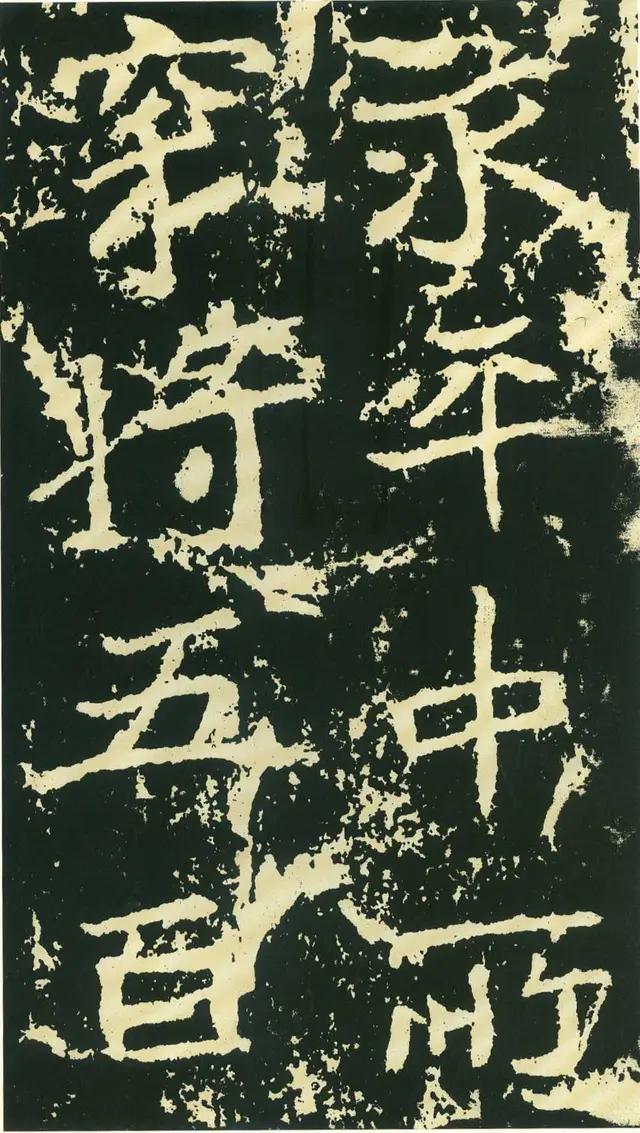 永平中所
穿將五百